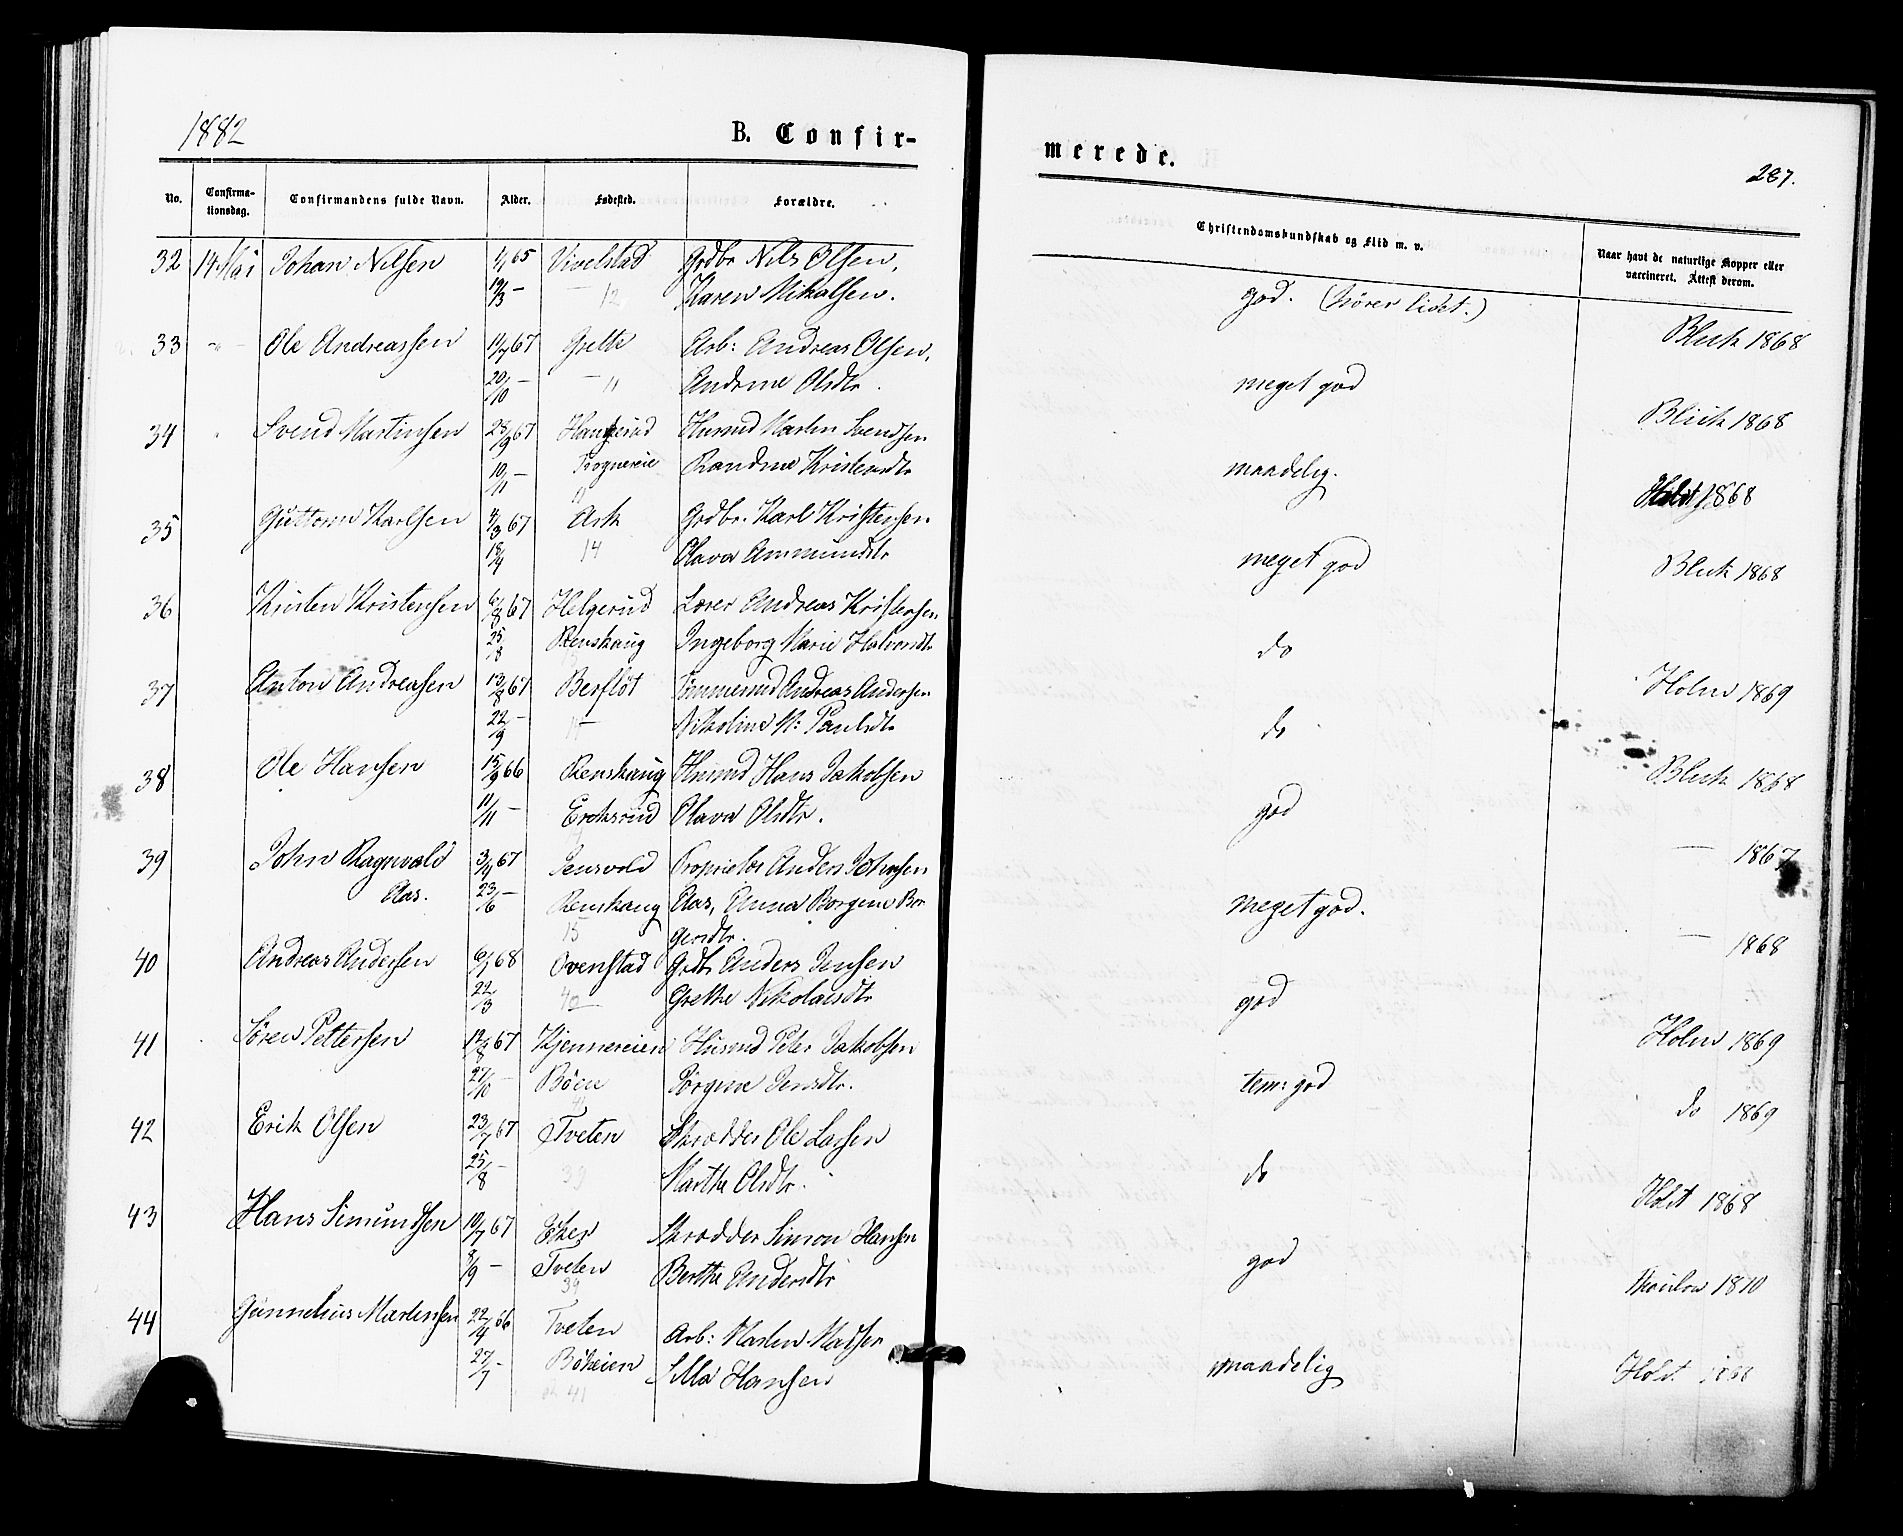 1882
B. Confir-
merede.
287.
No.
Confirma-
tionsdag.
Confirmandens fulde Navn.
Alder.
Fødested.
Forældre.
Christendomskundskab og Flid m. v.
Naar havt de naturlige Kopper eller
vaccineret. Attest derom.
32 14 Mai Johan Nilsen 1/1 65 Vivelstad Grdbr Nils Olsen,
19/3 — — 12 Karen Nikolsen. god. (hører lidet.) Bleck 1868
33 Ole Andreassen 11/7 67 Gretli Arb: Andreas Olsen,
20/10 — — " Andrine Olsdtr. meget god Blick 1868
34 Svend Martinsen 28/9 67 Husmd Martin Svendsen
10/11 — Randine Kristensdtr maadelig. Holst 1868
35 Guttorm Karlsen 4/3 67 Ask Grdbr. Karl Kristensen
18/4 14 Olava Ammundsdtr meget god Bleck 1868
36 Kristen Kristensen 6/8 67 Helgerud Lærer Andreas Kristensen
25/8 Renskaug Ingeborg Marie Halvorsdtr do Holm 1869
37 Anton Andreasen 13/8 67 Berflot Tømmermd Andreas Andersen
22/9 — Nikoline M: Paulsdtr do Bleck 1868
38 Ole Hansen 15/9 66 Renskaug Husmd Hans Jakobsen
11/11 — Eriksrud Olava Olsdtr. god — 1867
39 John Ragnvald 3/4 67 Jensvold Proprietær Anders Johnsen
Aas. 23/6 — Renskaug Aas, Anna Borgine Bor
15 gersdtr. meget god. — 1868
40 Andreas Andersen 6/1 68 Ovenstad Grdb Anders Jensen
22/3 40 — Grethe Nikolaisdtr god Holm 1869
41 Søren Pettersen 12/8 67 Kjennereien Husmd Peter Jakobsen
27/10 — Böen Jörgine Jensdtr. tem: god do 1869
42 Erik Olsen 23/7 67 Tveten Skrædder Ole Larsen
25/8 — 39 Marthe Olsdtr. do Holst 1868
43 Hans Simundsen 10/7 67 Skrædder Simon Hansen
8/9 — Tveten 39 Berthe Andersdtr god 1870
44 Gunnelius Martinsen 22/4 66 Tveten Arb: Martin Madsen
27/7 — 41 Silla Hansen maadelig Holst 1868